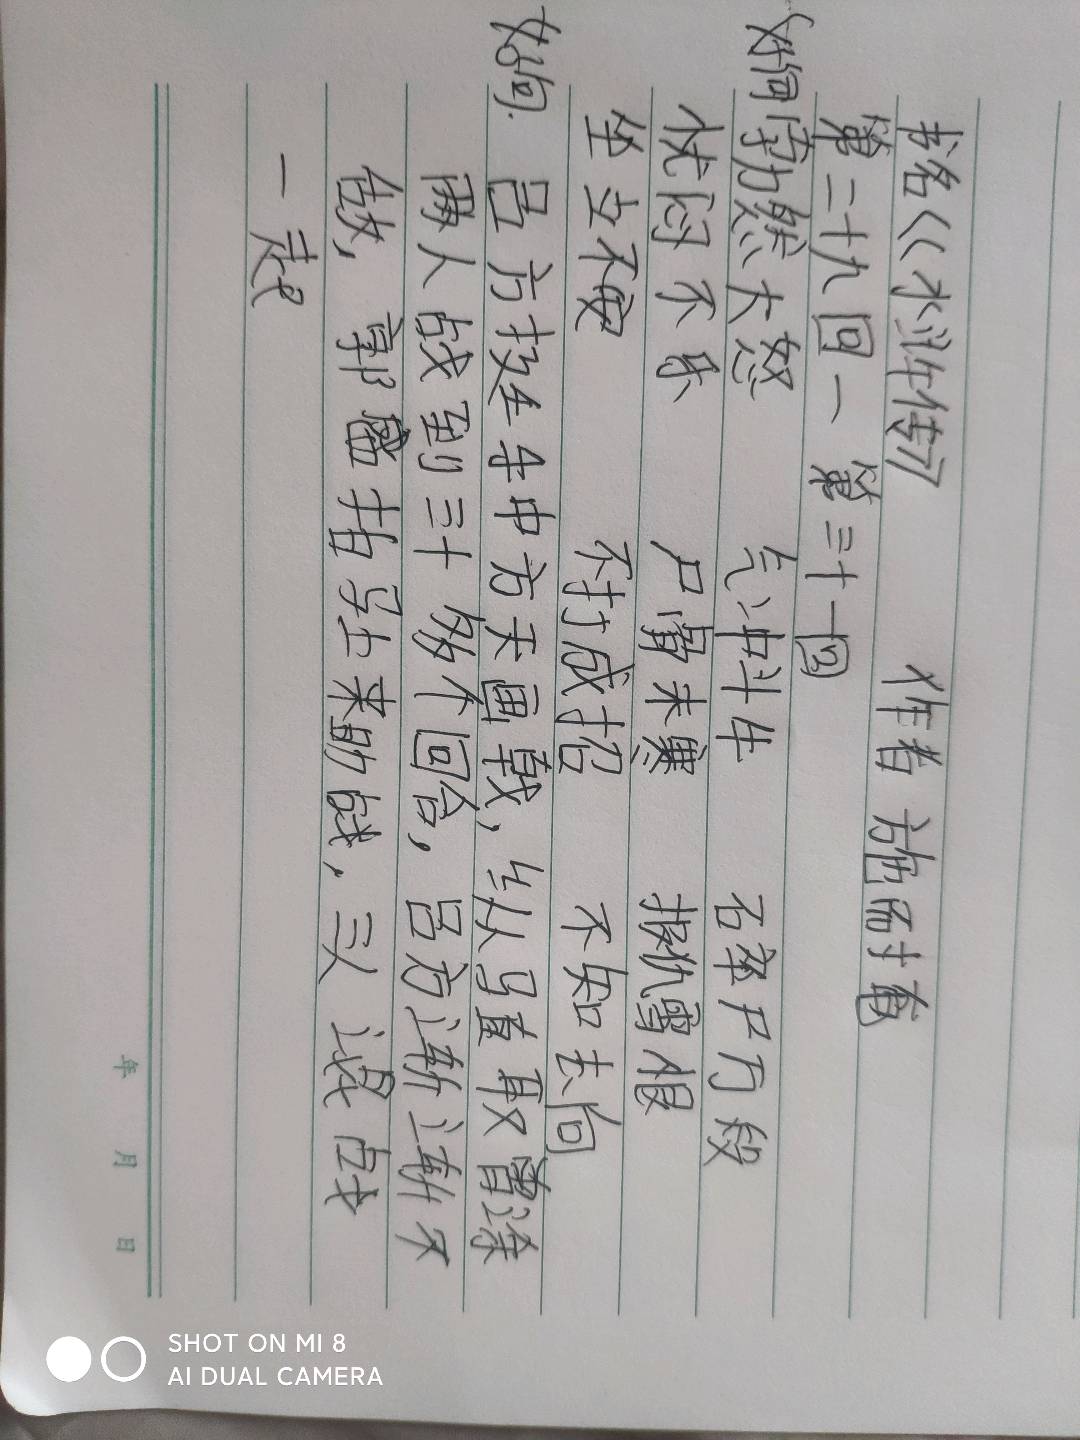 书名《水浒传》 作者 施耐庵
第二十九回一 第三十一回
好词 勃然大怒 气冲斗牛 碎尸万段
忧闷不乐 尸骨未寒 报仇雪恨
坐立不安 不打成招 不知去向
好句. 吕方挺手中方天画戟，纵马直取曾涂
两人战到三十多个回合，吕方渐渐不
敌，郭盛拍马上来助战，三人混战
一起
年 月 日
SHOT ON MI 8
AI DUAL CAMERA